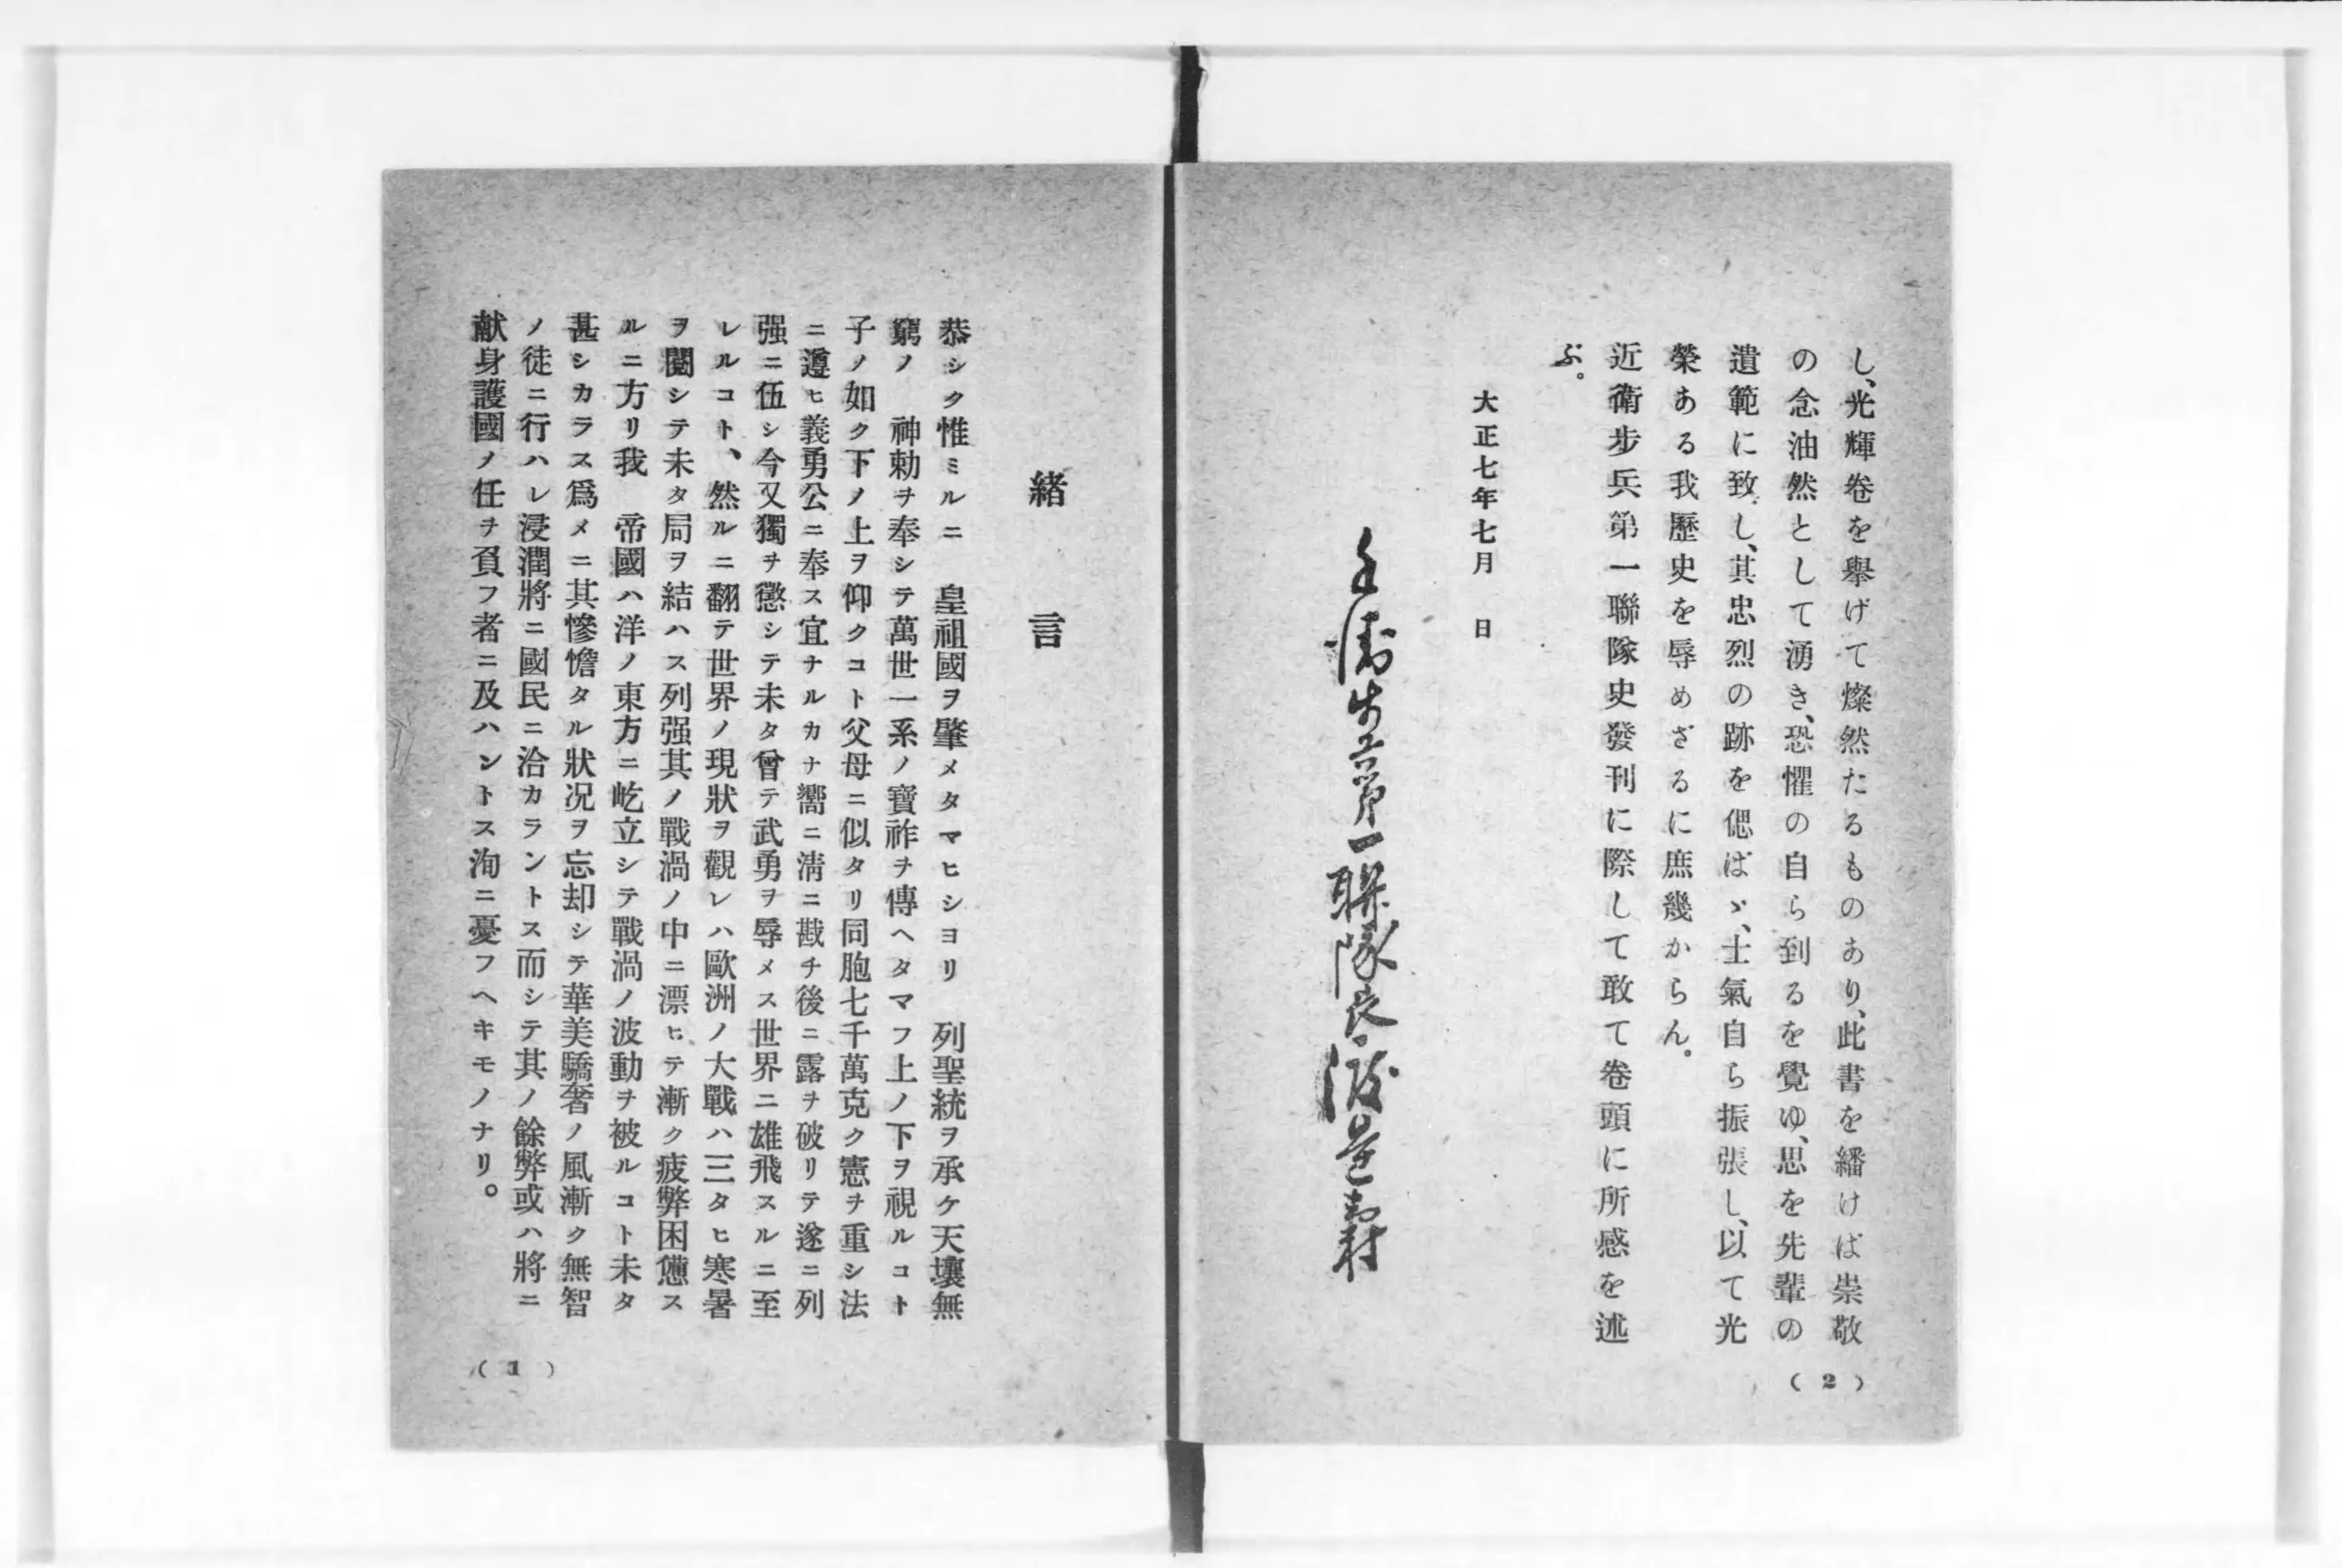 し、光輝卷を擧げて燦然たるものあり、此書を繙けば崇敬
の念油然として湧き、恐懼の自ら到るを覺ゆ、思を先輩の
遺範に致し、其忠烈の跡を偲ばゞ、士氣自ら振張し、以て光
榮ある我歷史を辱めざるに庶幾からん。
近衞步兵第一聯隊史發刊に際して敢て卷頭に所感を述
ぶ。
大正七年七月　日
近衞步兵第一聯隊長渡邊壽
(2)
緖言
恭シク惟ミルニ　皇祖國ヲ肇メタマヒショリ　列聖統ヲ承ケ天壤無
窮ノ　神勅ヲ奉シテ萬世一系ノ寶祚ヲ傳ヘタマフ上ノ下ヲ視ルコト
子ノ如ク下ノ上ヲ仰クコト父母ニ似タリ同胞七千萬克ク憲ヲ重シ法
ニ遵ヒ義勇公ニ奉ス宜ナルカナ嚮ニ淸ニ戡チ後ニ露ヲ破リテ遂ニ列
强ニ伍シ今又獨ヲ懲シテ未タ曾テ武勇ヲ辱メス世界ニ雄飛スルニ至
レルコト、然ルニ翻テ世界ノ現狀ヲ觀レハ歐洲ノ大戰ハ三タヒ寒暑
ヲ閱シテ未タ局ヲ結ハス列强其ノ戰渦ノ中ニ漂ヒテ漸ク疲弊困憊ス
ルニ方リ我　帝國ハ洋ノ東方ニ屹立シテ戰渦ノ波動ヲ被ルコト未タ
甚シカラス爲メニ其慘憺タル狀况ヲ忘却シテ華美驕奢ノ風漸ク無智
ノ徒ニ行ハレ浸潤將ニ國民ニ洽カラントス而シテ其ノ餘弊或ハ將ニ
献身護國ノ任ヲ負フ者ニ及ハントス洵ニ憂フヘキモノナリ。
(1)